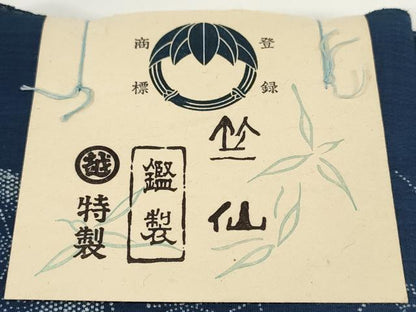 登録
商標
竺仙
鑑製
越
特製